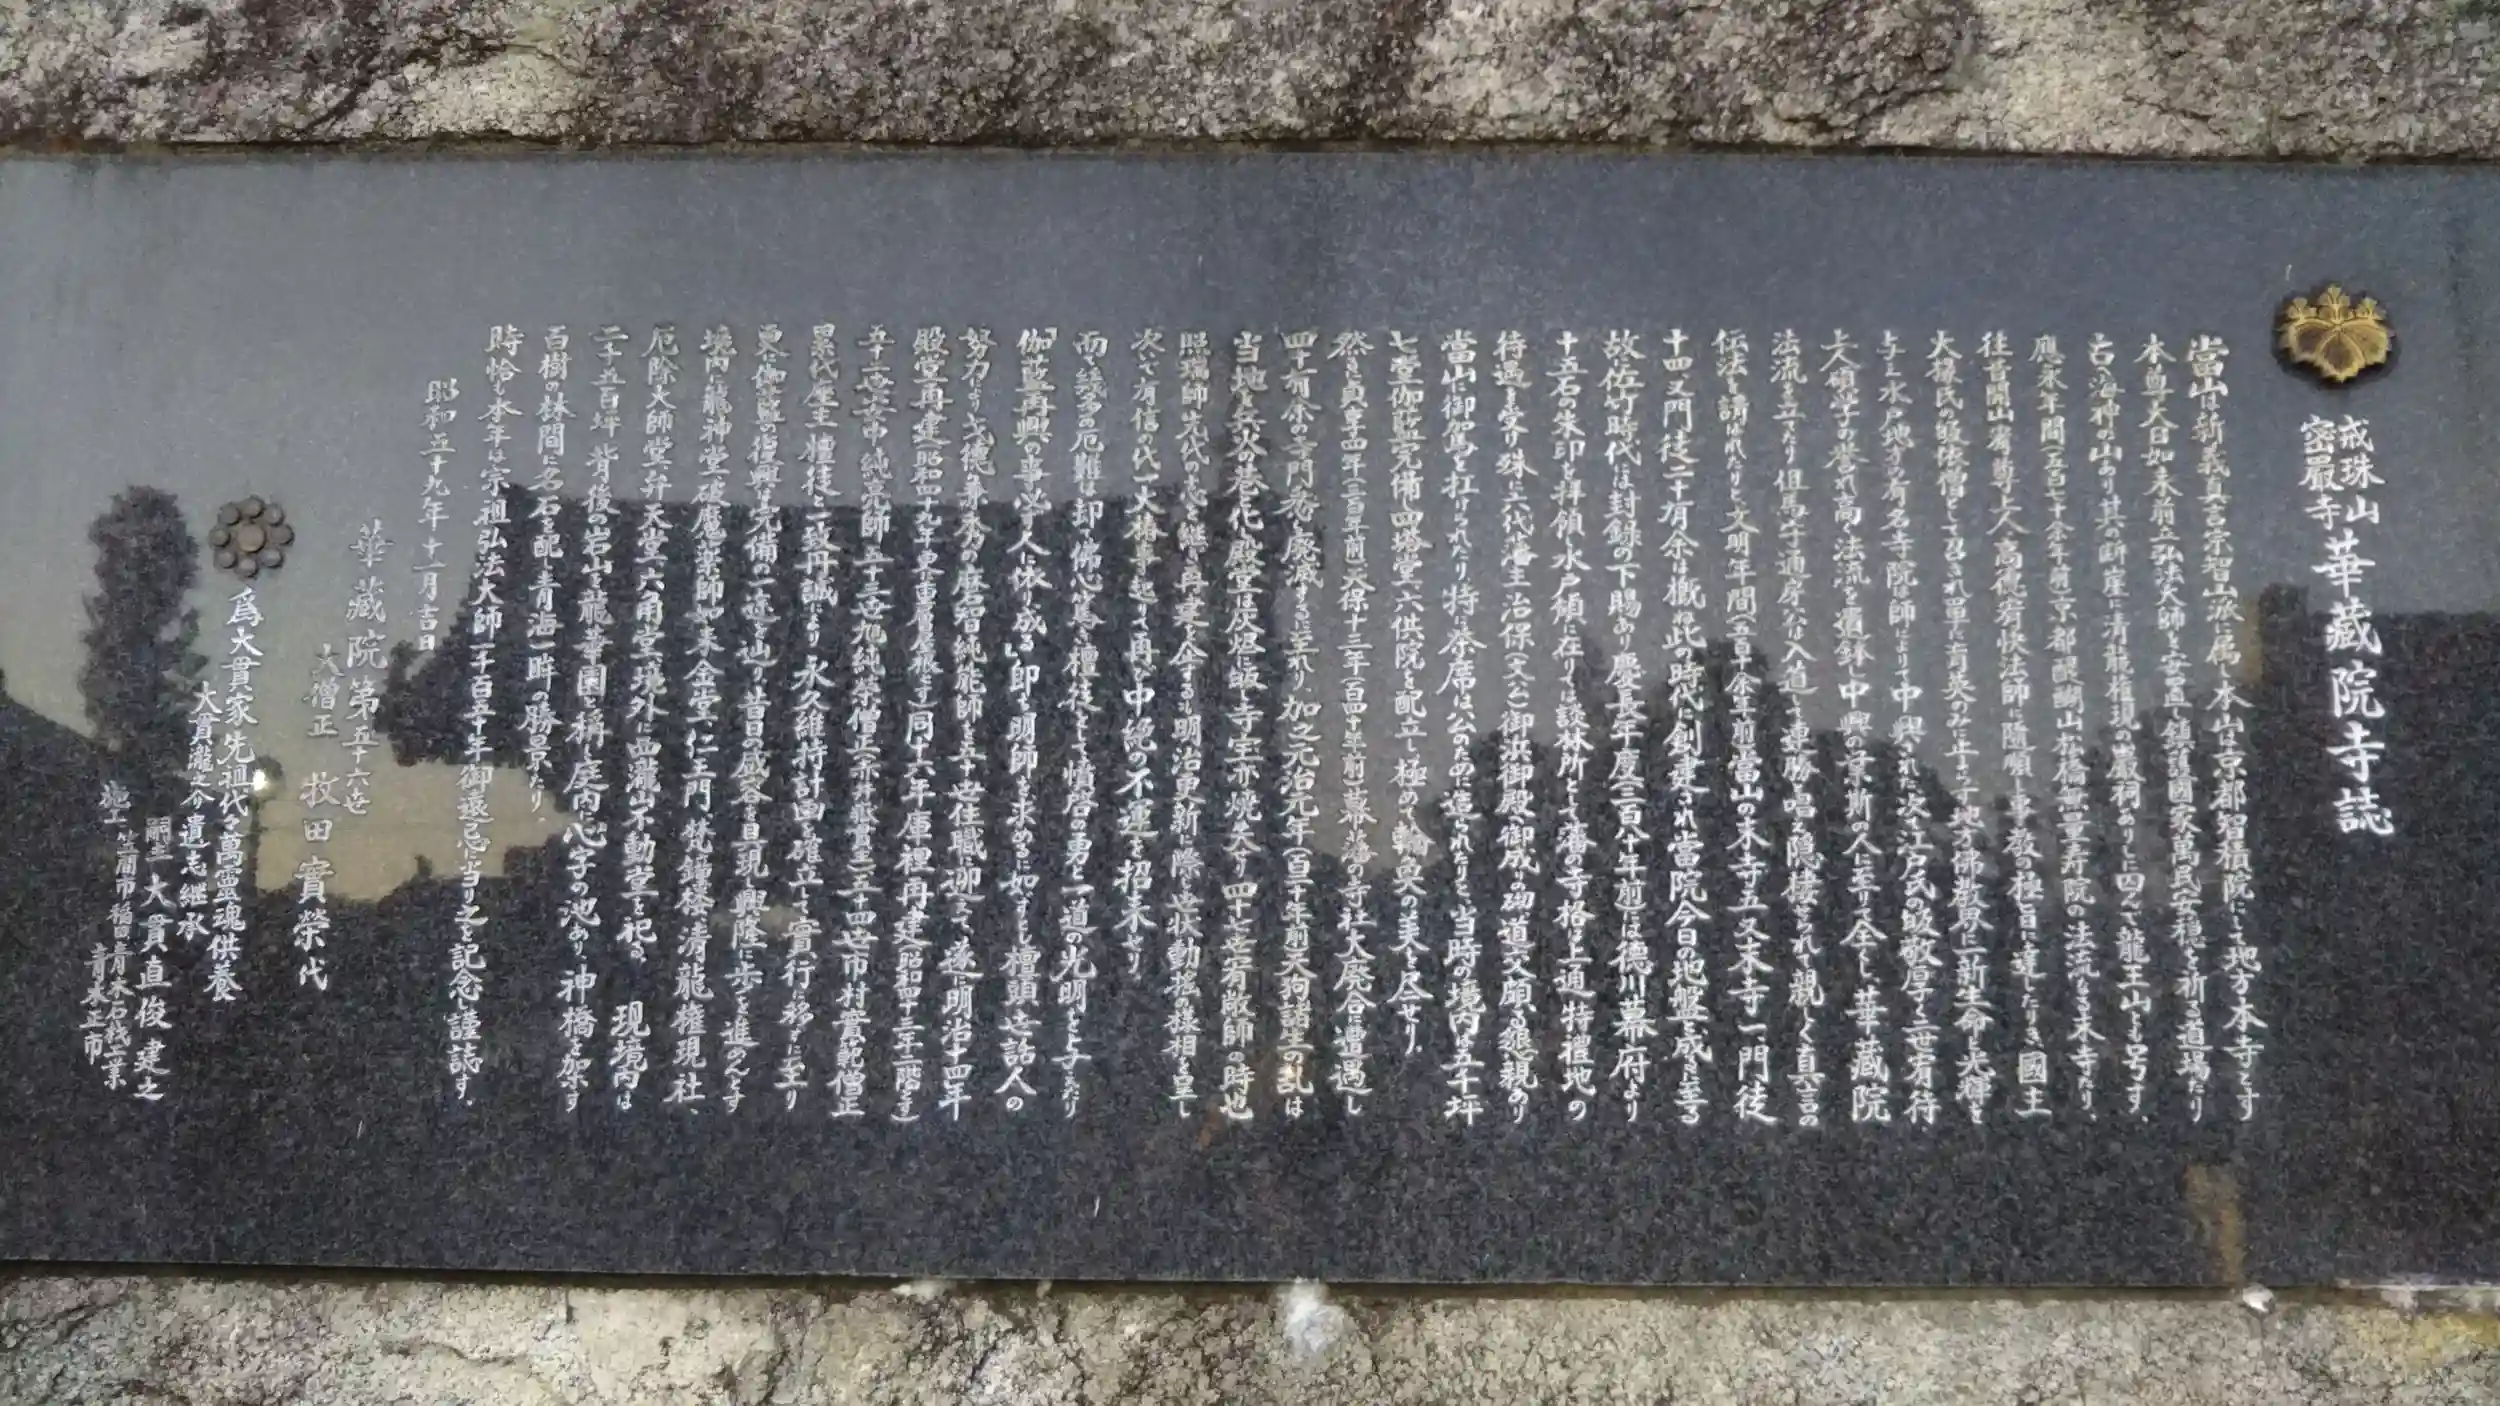 戒珠山
密巖寺
華藏院寺誌
當山は新義真言宗智山派に属し本山は京都智積院にして地方本寺とす
本尊大日如来脇立弘法大師を安置し鎮護國家萬民安穏を祈る道場たり
古へ海神の山あり其の断崖に清龍権現の巖祠ありしに因んで龍王山とも号す、
應永年間(五百七十余年前)京都醍醐山松橋無量壽院の法流なる末寺たり、
往昔開山宥尊上人高徳宥快法師に随順し事教の極旨に達したりき國主
大掾氏の皈依僧として召され單に育英のみに止まらず地方佛教界に新生命と光輝を
与へ水戸地方の有名寺院は師によりて中興され次で江戸氏の皈敬厚く三世宥待
上人碩学の誉れ高く法流を遺鉢し中興の業斯の人に至りて全とし華藏院
法流を立てたり但馬守通房公は入道して連勝と唱へ隠棲せられ親しく真言の
伝法を請はれたりと文明年間(五百十余年前)當山の末寺五又末寺一門徒
十四又門徒二十有余は概ね此の時代に創建され當院今日の地盤を成すに至る
故佐竹時代は封録の下賜あり慶長年度(三百八十年前)には徳川幕府より
十五石の朱印を拝領水戸領に在りては談林所として藩の寺格は上通特禮地の
待遇を受け殊に六代藩主治保(文公)御浜御殿へ御成りの砌道交頗る懇親あり
當山に御駕を扛げられたり特に茶席は公のために造られたりと、当時の境内は五千坪
七堂伽藍完備し四塔堂六供院を配立し極めて輪奐の美を尽せり、
然るに貞享四年(三百年前)天保十三年(百四十年前)幕、当藩の寺社大廃合に遭遇し
四十有余の寺門孰れも廃滅するに至れり、加之元治元年(百二十年前)天狗諸生の乱は
当地を兵火の巷と化し殿堂は灰燼に皈し寺宝亦焼失せり四十七世宥散師の時也
照瑞師先代の志を継ぎ再建を企てするも明治更新に際し世状動揺の様相を呈し
次いで有信の代一大椿事起りて再び中絶の不運を招来せり
而も幾多の厄難は却て佛心篤き檀徒をして憤啓の勇と一道の光明とを与へたり
「伽藍再興の事必ず人に依り成る」印ち明師を求めるに如かずとし檀頭世話人の
努力により才徳兼秀の磨智純能師を五十世住職に迎えて、遂に明治十四年
殿堂再建(昭和四十九年更に重層屋根とす)同十六年庫裡再建(昭和四十三年二階とす)
五十二世安中純亮師、五十三世旭純榮僧正亦共に献貢し、五十四世市村貴範僧正
累代座主檀徒と一致丹誠により永久維持計画を確立して實行に移すに至り
更に伽藍の復興は完備の一途を辿り昔日の威容を具現し興隆に歩を進めんとす
境内に龍神堂、破魔薬師如来金堂、仁王門、梵鐘楼、清龍権現社、
厄除大師堂、弁天堂、六角堂、境外に西瀧山不動堂を祀る、 現境内は
二千五百坪背後の岩山を龍華園と稱し庭内に心字の池あり、神橋を架す
百樹の林間に名石を配し青海一眸の勝景たり、
時恰も本年は宗祖弘法大師一千百五十年御遠忌に当り之を記念し謹誌す、
昭和五十九年十一月吉日
華藏院第五十六世
大僧正 牧田實榮代
為大貫家先祖代々萬霊魂供養
大貫瀧之介遺志継承
嗣主 大貫直俊建之
施工 笠間市稲田 青木石材工業
青木正市